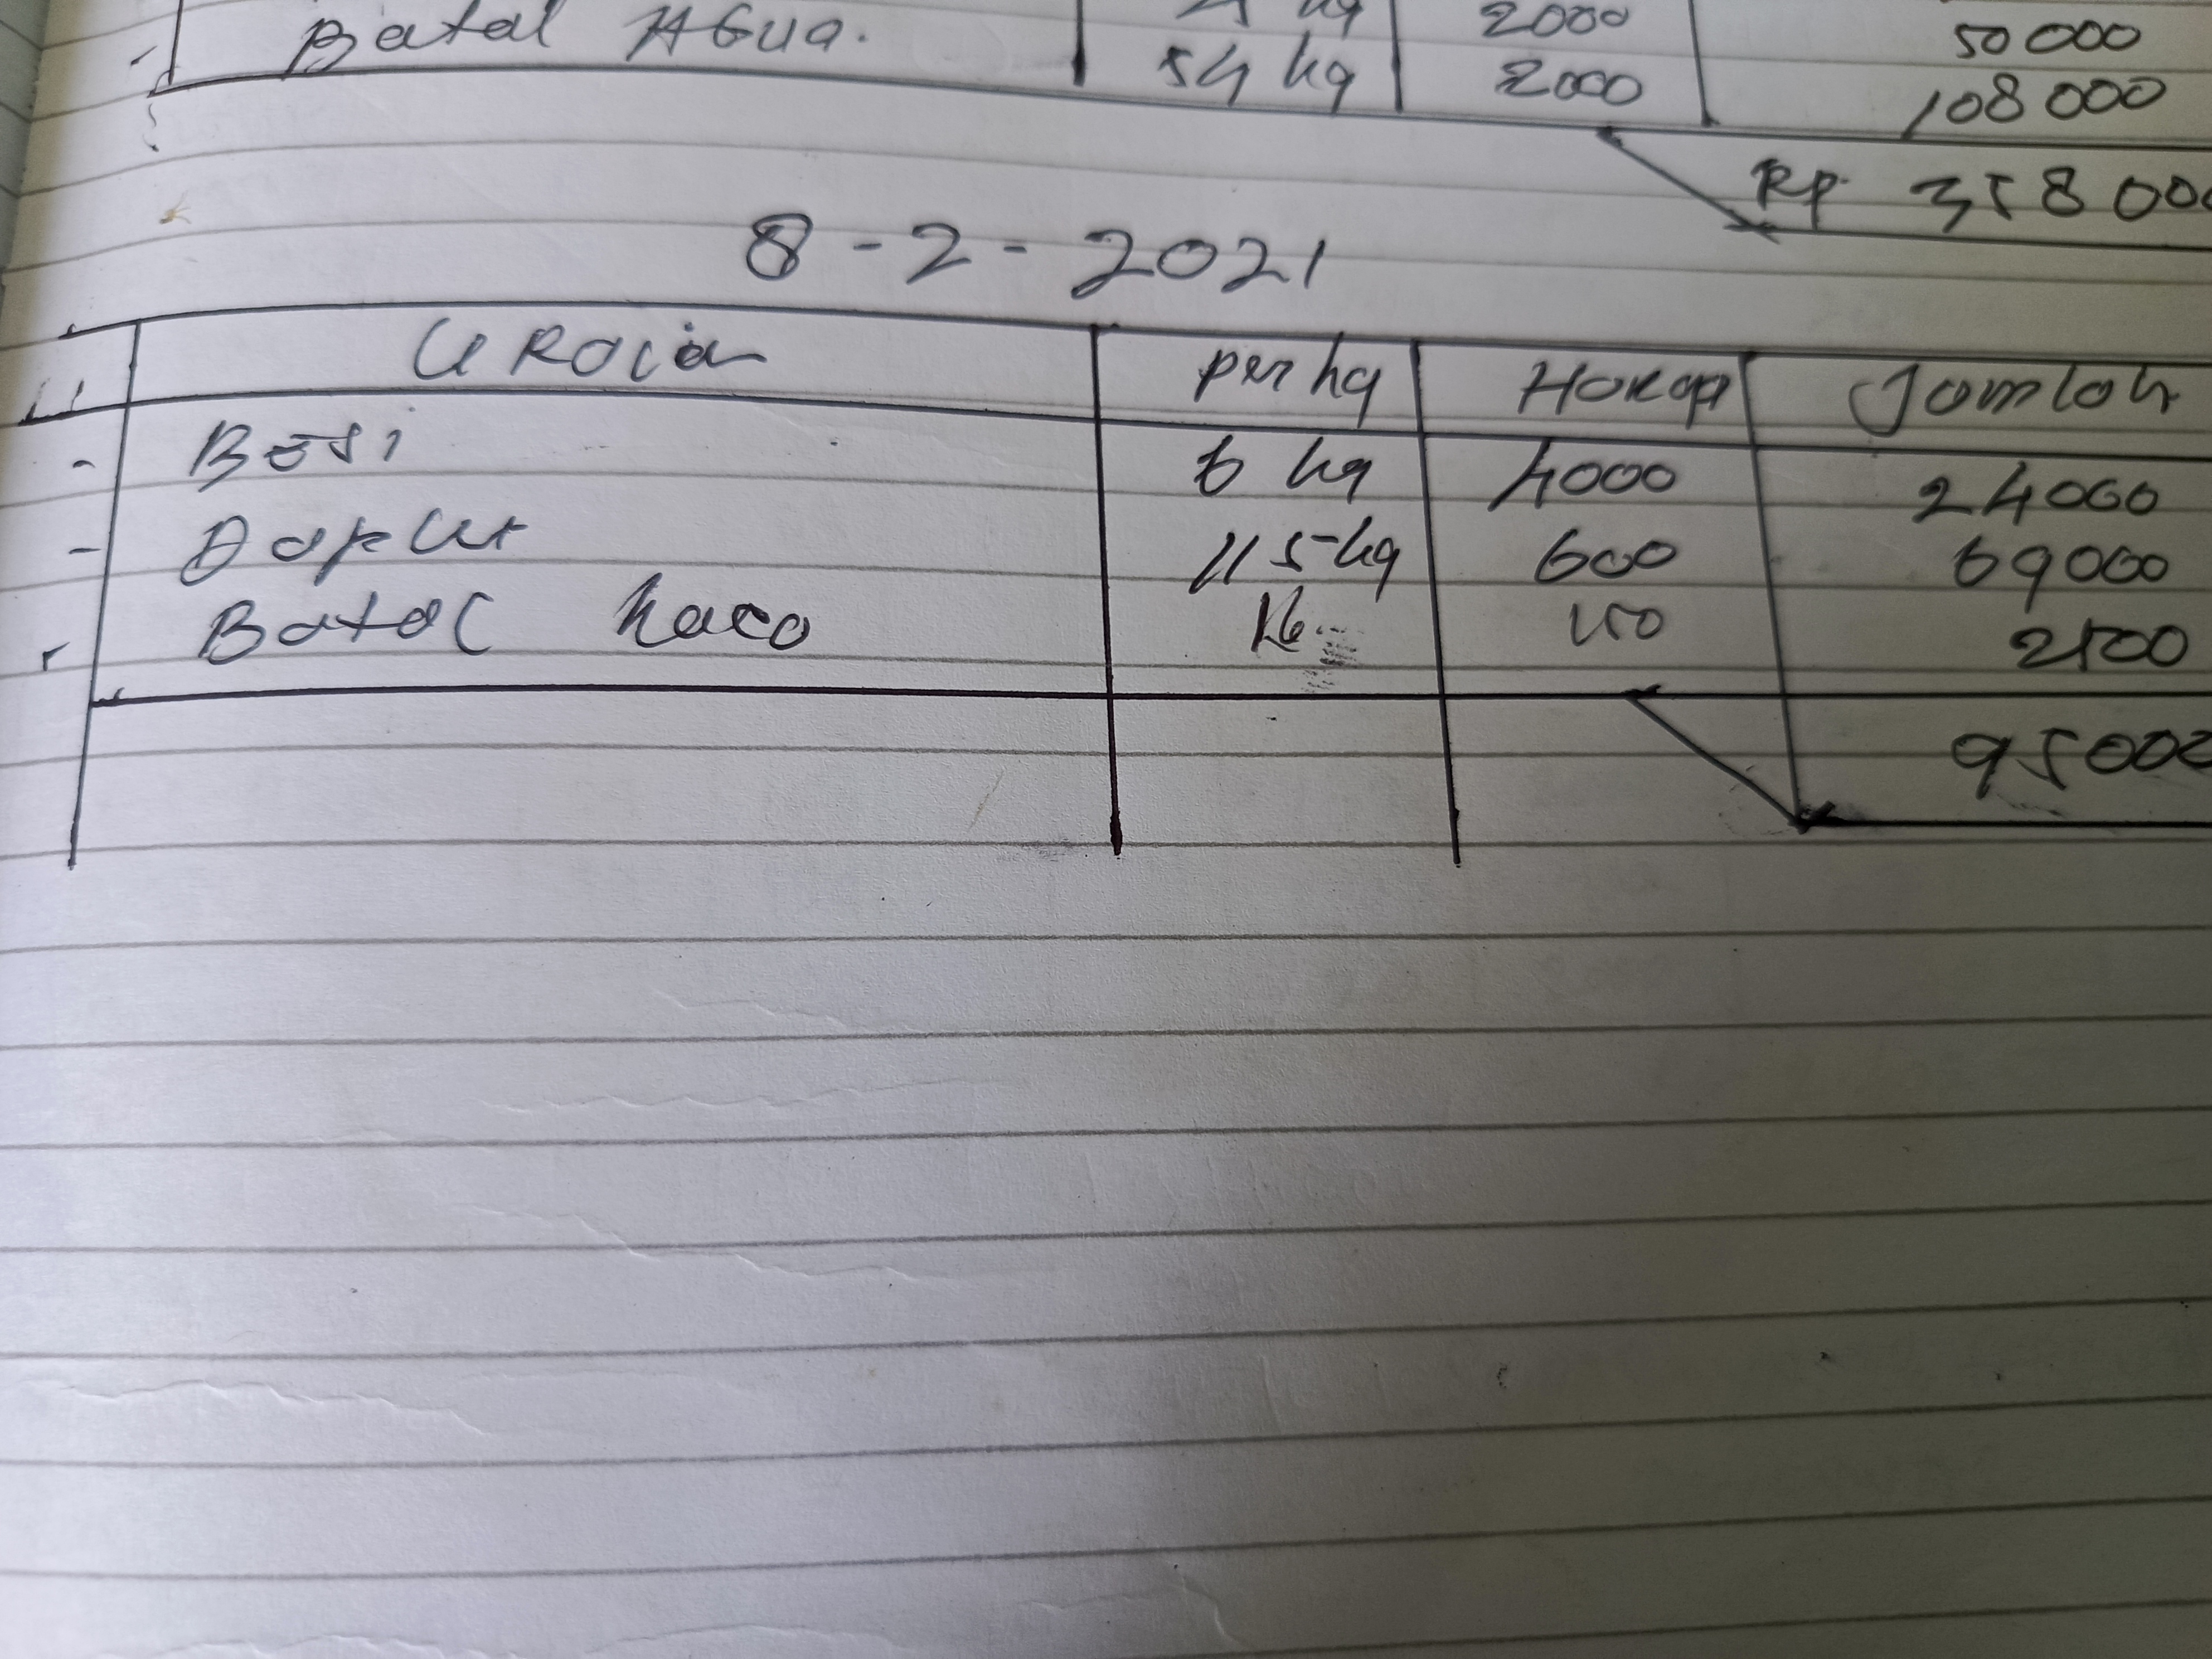 kg 2000 50 000
Batal AGua. 54 kg 2000 108 000
Rp. 358 000
8 - 2 - 2021
URaian per kg Harga Jumlah
- Besi 6 kg 4000 24000
- Daplur 115 kg 600 69000
Botol kaca 16 150 2500
95000